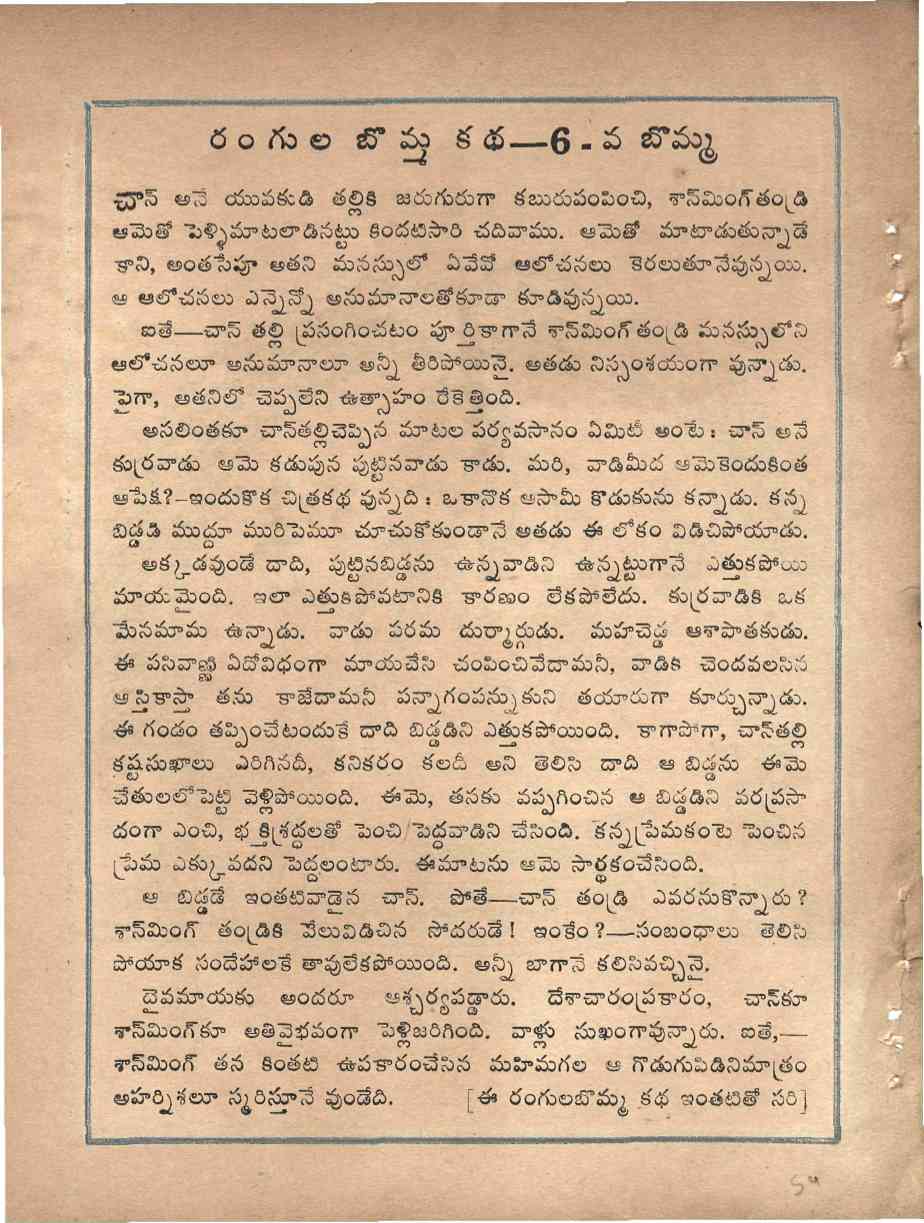 రంగుల బొమ్మ కథ—6 - వ బొమ్మ
చాన్ అనే యువకుడి తల్లికి జరుగురుగా కబురుపంపించి, శాన్‌మింగ్ తండ్రి
ఆమెతో పెళ్ళిమాటలాడినట్టు కిందటిసారి చదివాము. ఆమెతో మాటాడుతున్నాడే
కాని, అంతసేపూ అతని మనస్సులో ఏవేవో ఆలోచనలు కెరలుతూనేవున్నయి.
ఆ ఆలోచనలు ఎన్నెన్నో అనుమానాలతోకూడా కూడివున్నయి.
ఐతే—చాన్ తల్లి ప్రసంగించటం పూర్తికాగానే శాన్‌మింగ్ తండ్రి మనస్సులోని
ఆలోచనలూ అనుమానాలూ అన్నీ తీరిపోయినై. అతడు నిస్సంశయంగా వున్నాడు.
పైగా, అతనిలో చెప్పలేని ఉత్సాహం రేకెత్తింది.
అసలింతకూ చాన్‌తల్లిచెప్పిన మాటల పర్యవసానం ఏమిటీ అంటే : చాన్ అనే
కుర్రవాడు ఆమె కడుపున పుట్టినవాడు కాడు. మరి, వాడిమీద ఆమెకెందుకింత
ఆపేక్ష?-ఇందుకొక చిత్రకథ వున్నది : ఒకానొక ఆసామీ కొడుకును కన్నాడు. కన్న
బిడ్డడి ముద్దూ మురిపెమూ చూచుకోకుండానే అతడు ఈ లోకం విడిచిపోయాడు.
అక్కడవుండే దాది, పుట్టినబిడ్డను ఉన్నవాడిని ఉన్నట్టుగానే ఎత్తుకపోయి
మాయమైంది. ఇలా ఎత్తుకిపోవటానికి కారణం లేకపోలేదు. కుర్రవాడికి ఒక
మేనమామ ఉన్నాడు. వాడు పరమ దుర్మార్గుడు. మహచెడ్డ ఆశాపాతకుడు.
ఈ పసివాణ్ణి ఏదోవిధంగా మాయచేసి చంపించివేదామనీ, వాడికి చెందవలసిన
ఆస్తికాస్తా తను కాజేదామనీ పన్నాగంపన్నుకుని తయారుగా కూర్చున్నాడు.
ఈ గండం తప్పించేటందుకే దాది బిడ్డడిని ఎత్తుకపోయింది. కాగాపోగా, చాన్‌తల్లి
కష్టసుఖాలు ఎరిగినదీ, కనికరం కలదీ అని తెలిసి దాది ఆ బిడ్డను ఈమె
చేతులలోపెట్టి వెళ్లిపోయింది. ఈమె, తనకు వప్పగించిన ఆ బిడ్డడిని వరప్రసా
దంగా ఎంచి, భక్తిశ్రద్ధలతో పెంచి పెద్దవాడిని చేసింది. కన్నప్రేమకంటె పెంచిన
ప్రేమ ఎక్కువదని పెద్దలంటారు. ఈమాటను ఆమె సార్థకంచేసింది.
ఆ బిడ్డడే ఇంతటివాడైన చాన్. పోతే—చాన్ తండ్రి ఎవరనుకొన్నారు ?
శాన్‌మింగ్ తండ్రికి వేలువిడిచిన సోదరుడే ! ఇంకేం ?—సంబంధాలు తెలిసి
పోయాక సందేహాలకే తావులేకపోయింది. అన్నీ బాగానే కలిసివచ్చినై.
దైవమాయకు అందరూ ఆశ్చర్యపడ్డారు. దేశాచారంప్రకారం, చాన్‌కూ
శాన్‌మింగ్‌కూ అతివైభవంగా పెళ్లిజరిగింది. వాళ్లు సుఖంగావున్నారు. ఐతే,—
శాన్‌మింగ్ తన కింతటి ఉపకారంచేసిన మహిమగల ఆ గొడుగుపిడినిమాత్రం
అహర్నిశలూ స్మరిస్తూనే వుండేది. [ఈ రంగులబొమ్మ కథ ఇంతటితో సరి]